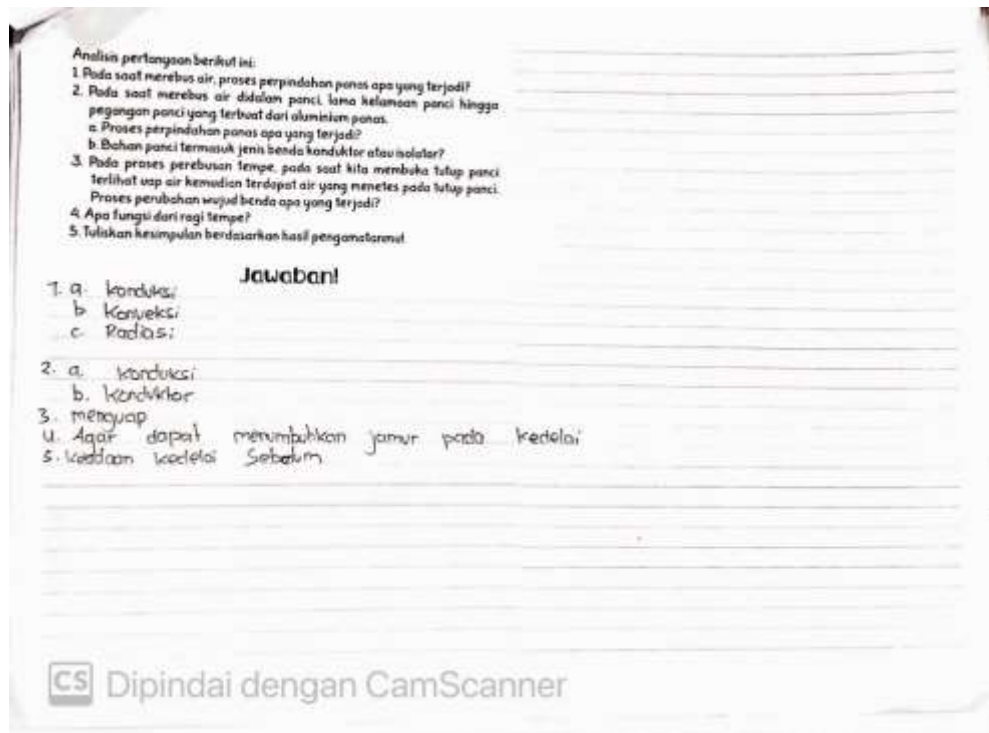 Analisis pertanyaan berikut ini:
1. Pada saat merebus air, proses perpindahan panas apa yang terjadi?
2. Pada saat merebus air didalam panci, lama kelamaan panci hingga
pegangan panci yang terbuat dari aluminium panas.
a. Proses perpindahan panas apa yang terjadi?
b. Bahan panci termasuk jenis benda konduktor atau isolator?
3. Pada proses perebusan tempe, pada saat kita membuka tutup panci
terlihat uap air kemudian terdapat air yang menetes pada tutup panci.
Proses perubahan wujud benda apa yang terjadi?
4. Apa fungsi dari ragi tempe?
5. Tuliskan kesimpulan berdasarkan hasil pengamatanmu!
Jawaban!
1. a. konduksi
b Konveksi
c. Radiasi
2. a. konduksi
b. konduktor
3. menguap
4. Agar dapat menumbuhkan jamur pada kedelai
5. keadaan kedelai Sebelum
CS Dipindai dengan CamScanner